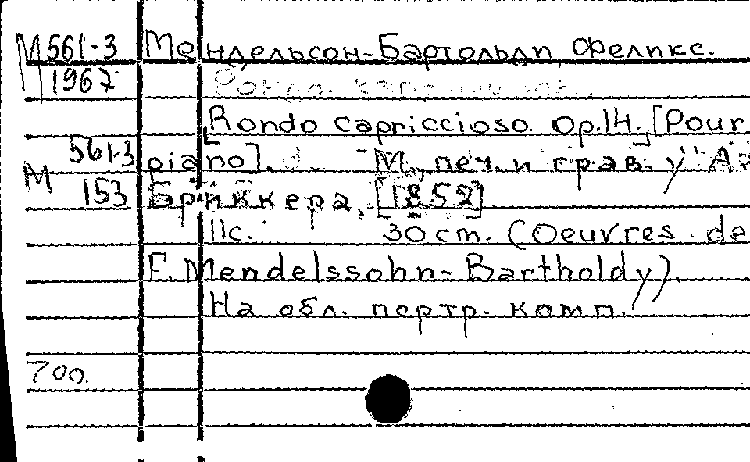 М 561-3 Мендельсон-Бартольди, Феликс.
1967
Rondo capriccioso. Op.14. [Pour
М 561-3 piano]. М., печ. и грав. у
153 Бриккера, [1852].
11с. 30 cm. (Oeuvres de
F. Mendelssohn-Bartholdy).
На обл. портр. комп.
700.